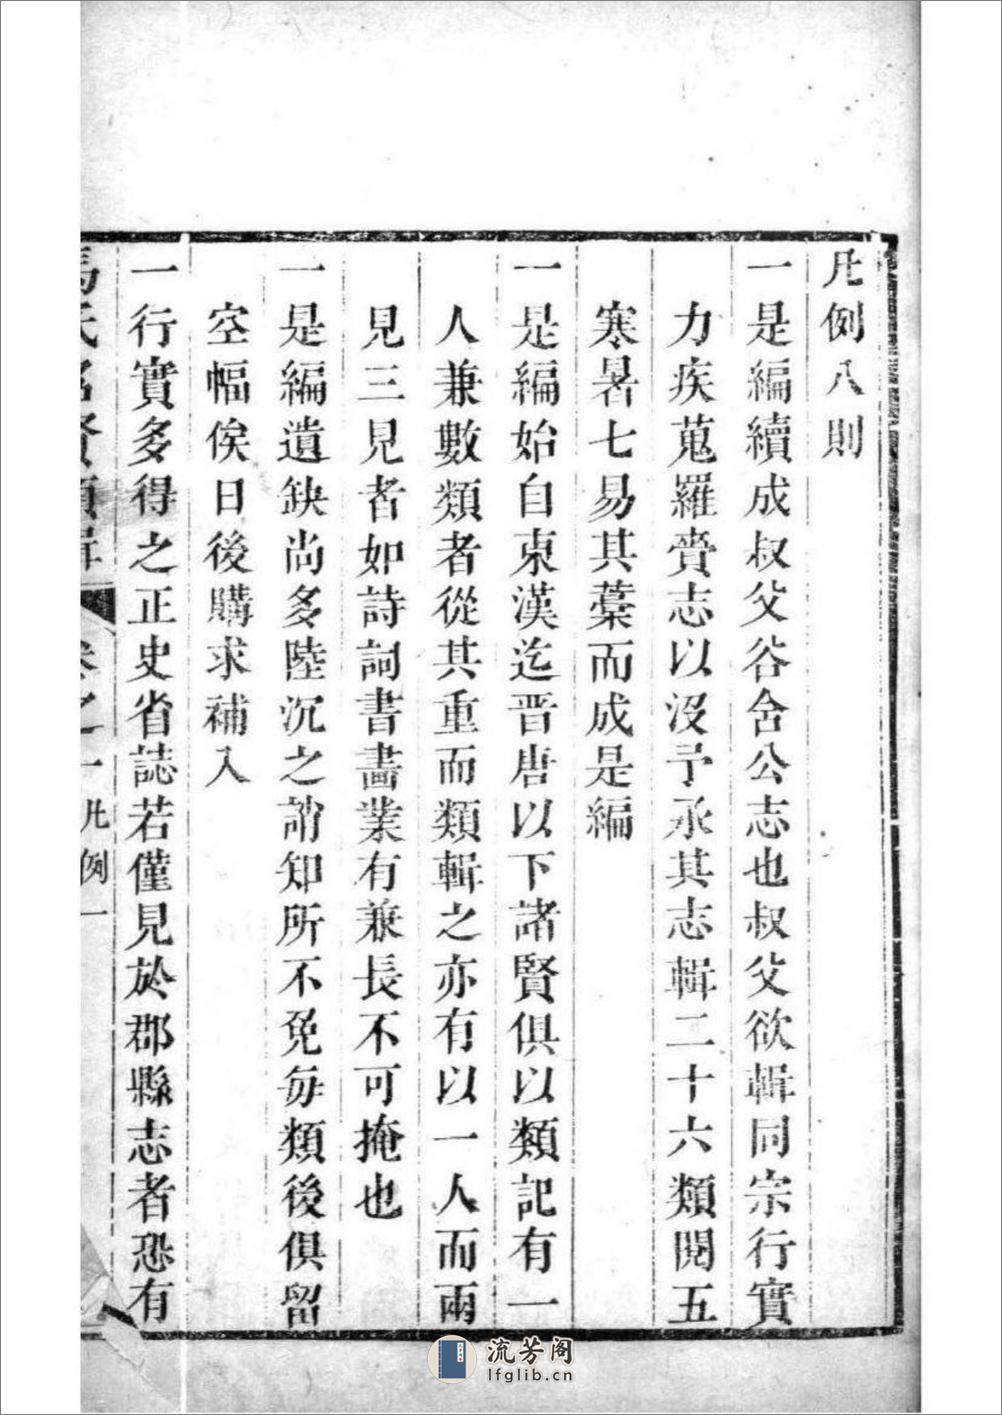 凡例八則
一是編續成叔父谷含公志也叔父欲輯同宗行實
力疾蒐羅賫志以沒予承其志輯二十六類閱五
寒暑七易其藁而成是編
一是編始自東漢迄晉唐以下諸賢俱以類記有一
人兼數類者從其重而類輯之亦有以一人而兩
見三見者如詩詞書畵業有兼長不可掩也
一是編遺缺尚多陸沉之誚知所不免每類後俱留
空幅俟日後購求補入
一行實多得之正史省誌若僅見於郡縣志者恐有
馬氏名賢類輯 卷之一 凡例一
流芳阁
lfglib.cn